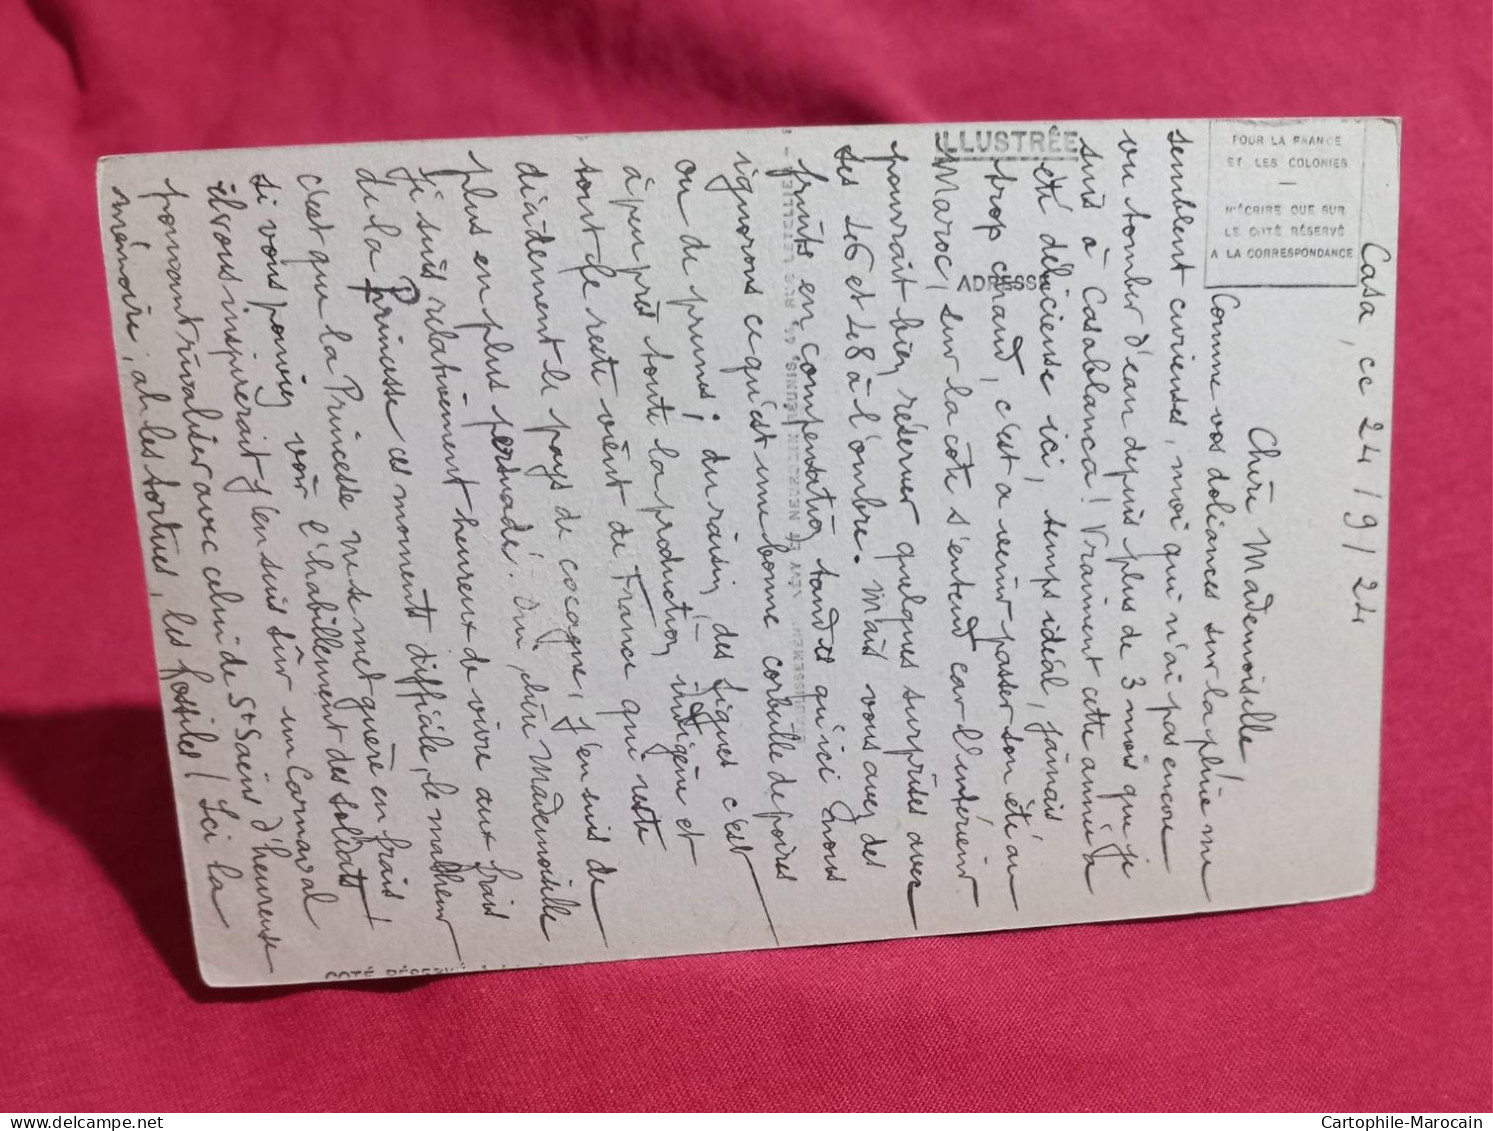 Casa, ce 24/9/24
Chère Mademoiselle!
Comme vos doliances sur la pluie me
semblent curieuses, moi qui n'ai pas encore
vu tomber d'eau depuis plus de 3 mois que je
suis à Casablanca! Vraiment cette année
été délicieuse ici, temps idéal, jamais
trop chaud, c'est à venir passer son été au
Maroc, sur la côte s'entend car l'intérieur
pourrait bien réserver quelques surprises avec
ses 46 et 48 à l'ombre. Mais vous avez des
fruits en compensation tandis qu'ici nous
ignorons ce qu'est une bonne corbeille de poires
ou de prunes; du raisin, des figues c'est
à peu près toute la production indigène et
tout le reste vient de France qui reste
décidément le pays de cocagne, j'en suis de
plus en plus persuadé. Oui, chère Mademoiselle
je suis relativement heureux de vivre aux frais
de la Princesse ces moments difficile, le malheur
c'est que la Princesse ne se met guère en frais!
si vous pouviez voir l'habillement des soldats
il vous inspirerait j'en suis sûr un Carnaval
pouvant rivaliser avec celui de St Saens d'heureuse
mémoire, ah les tortues, les fossiles! Ici la
ILLUSTRÉE
ADRESSE
POUR LA FRANCE
ET LES COLONIES
N'ÉCRIRE QUE SUR
LE CÔTÉ RÉSERVÉ
A LA CORRESPONDANCE
LEVY ET NEURDEIN RÉUNIS, 44, RUE LETELLIER
Cartophile-Marocain